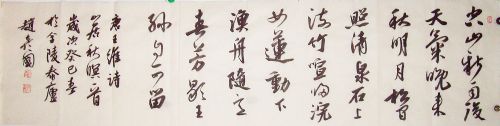 空山新雨後
天氣晚來
秋明月松間
照清泉石上
流竹喧歸浣
女蓮動下
漁舟隨意
春芳歇王
孫自可留
唐王維詩
山居秋暝一首
歲次癸巳春
於金陵春廬